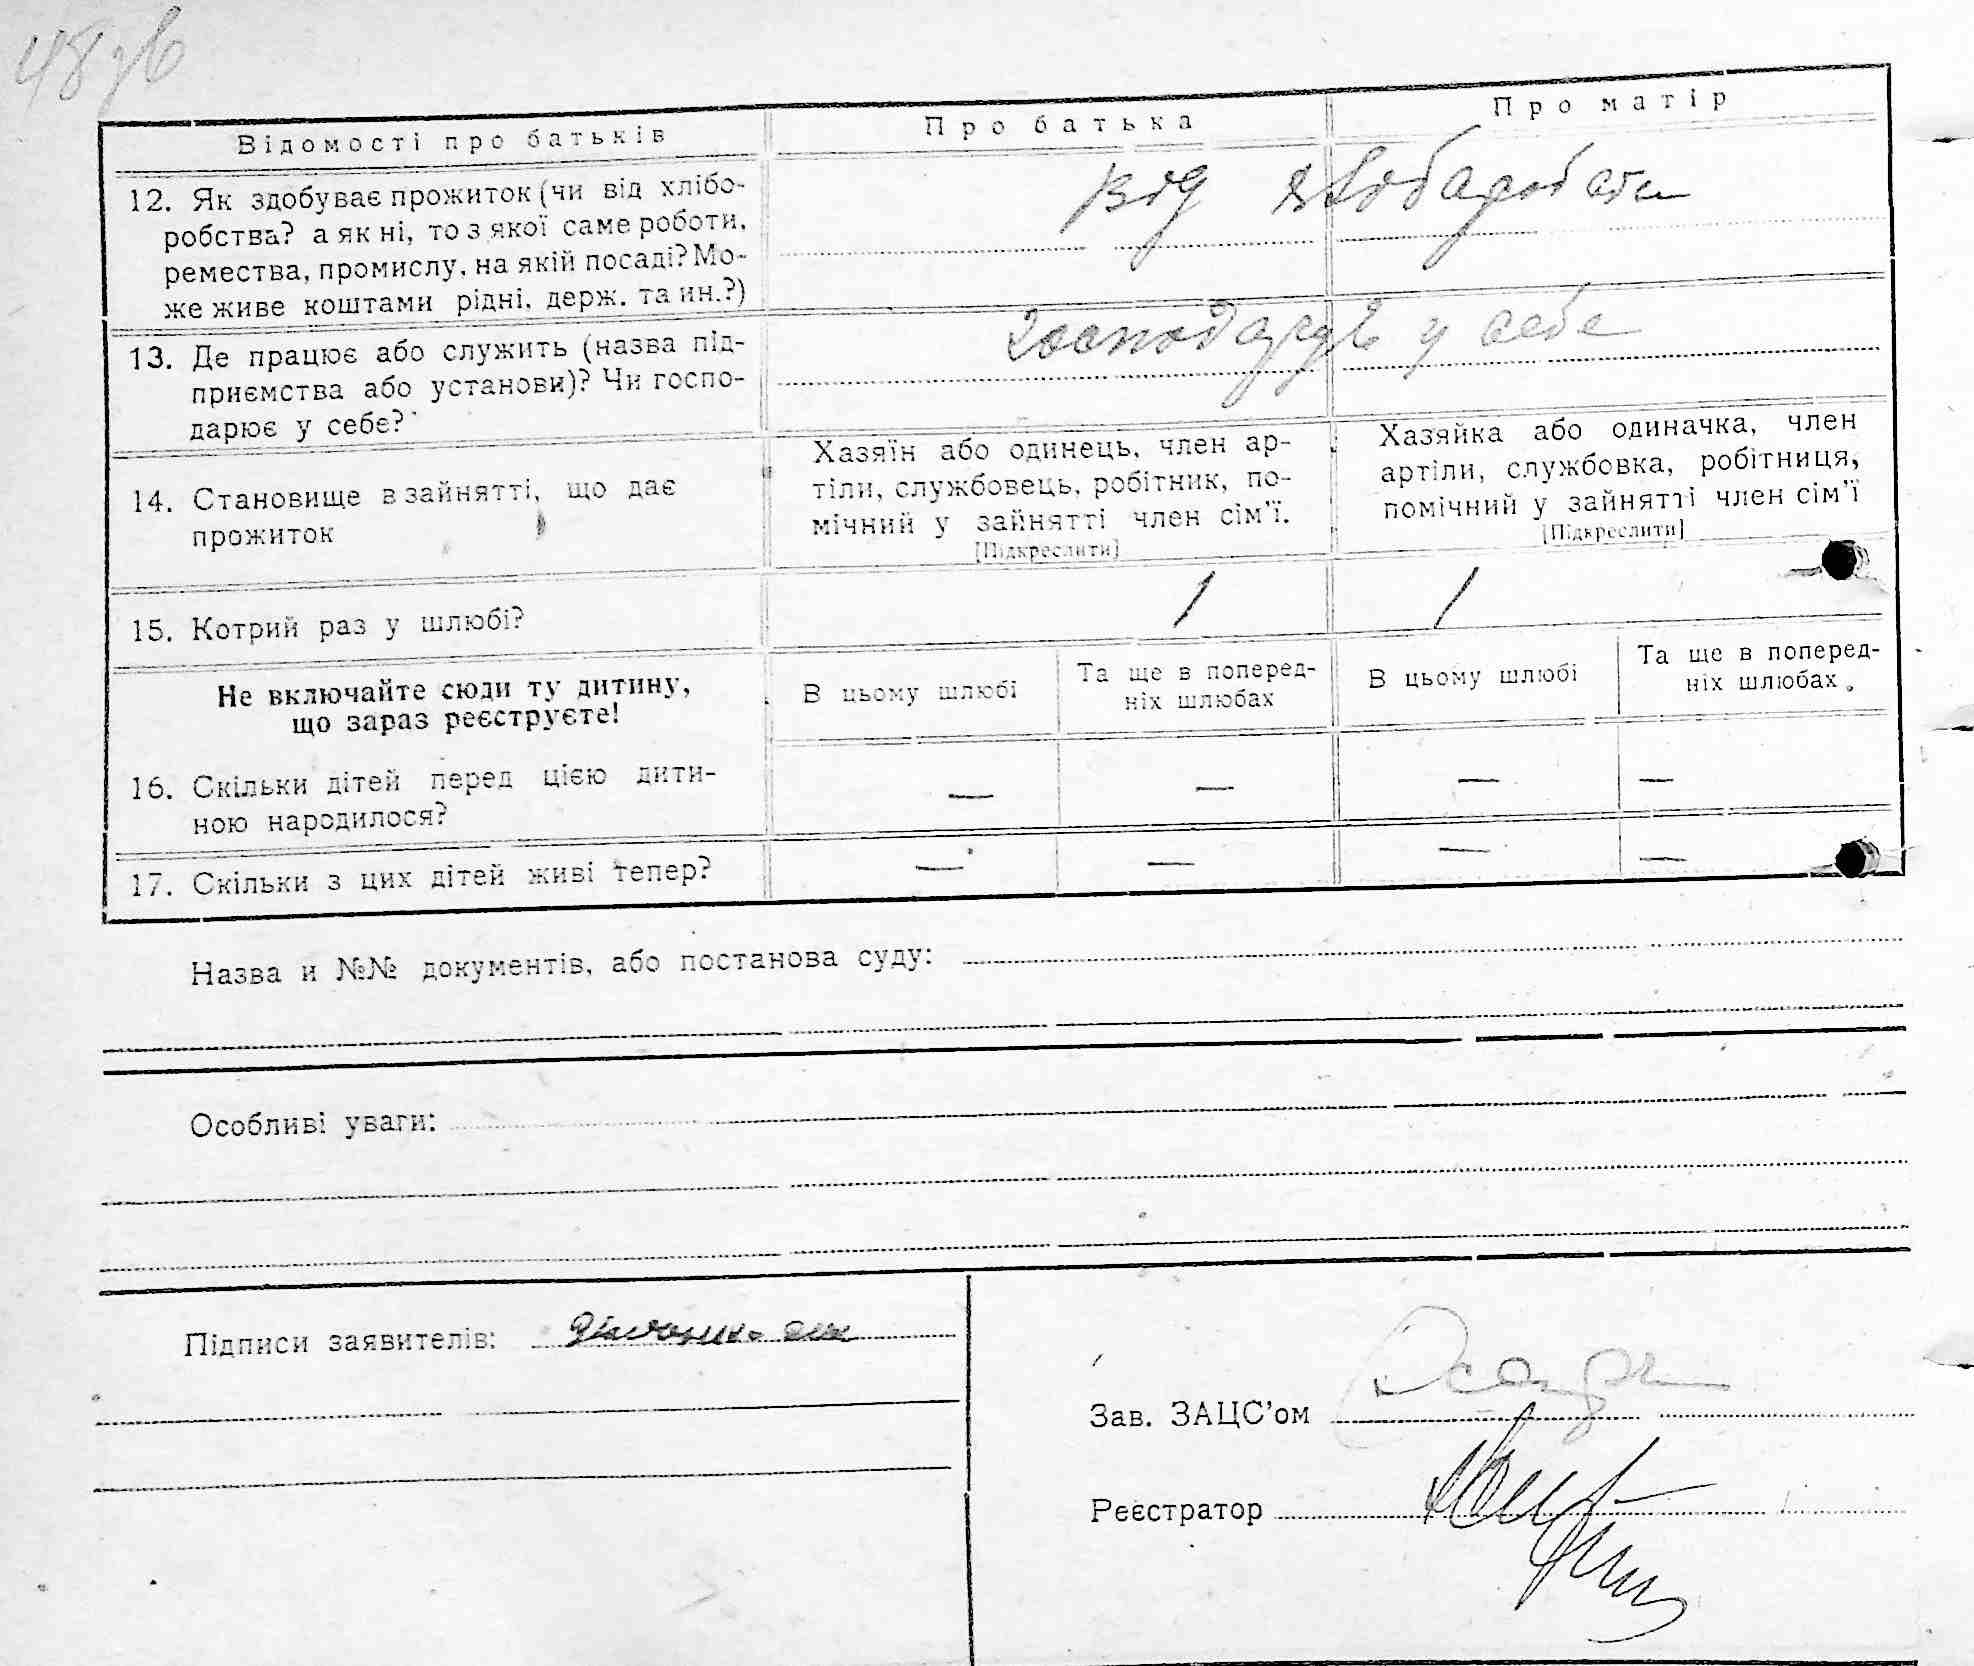 48 зв
Відомості про батьків
Про батька
Про матір
12. Як здобуває прожиток (чи від хлібо-
робства? а як ні, то з якої саме роботи,
ремества, промислу, на якій посаді? Мо-
же живе коштами рідні, держ. та ин.?)
Від
13. Де працює або служить (назва під-
приємства або установи)? Чи госпо-
дарює у себе?
у себе
14. Становище в зайнятті, що дає
прожиток
Хазяїн або одинець, член ар-
тіли, службовець, робітник, по-
мічний у зайнятті член сім'ї.
[Підкреслити]
Хазяйка або одиначка, член
артіли, службовка, робітниця,
помічний у зайнятті член сім'ї
[Підкреслити]
15. Котрий раз у шлюбі?
1
1
Не включайте сюди ту дитину,
що зараз реєструєте!
В цьому шлюбі
Та ще в поперед-
ніх шлюбах
В цьому шлюбі
Та ще в поперед-
ніх шлюбах.
16. Скільки дітей перед цією дити-
ною народилося?
— — — —
17. Скільки з цих дітей живі тепер?
— — — —
Назва и №№ документів, або постанова суду:
Особливі уваги:
Підписи заявителів:
Зав. ЗАЦС'ом
Реєстратор